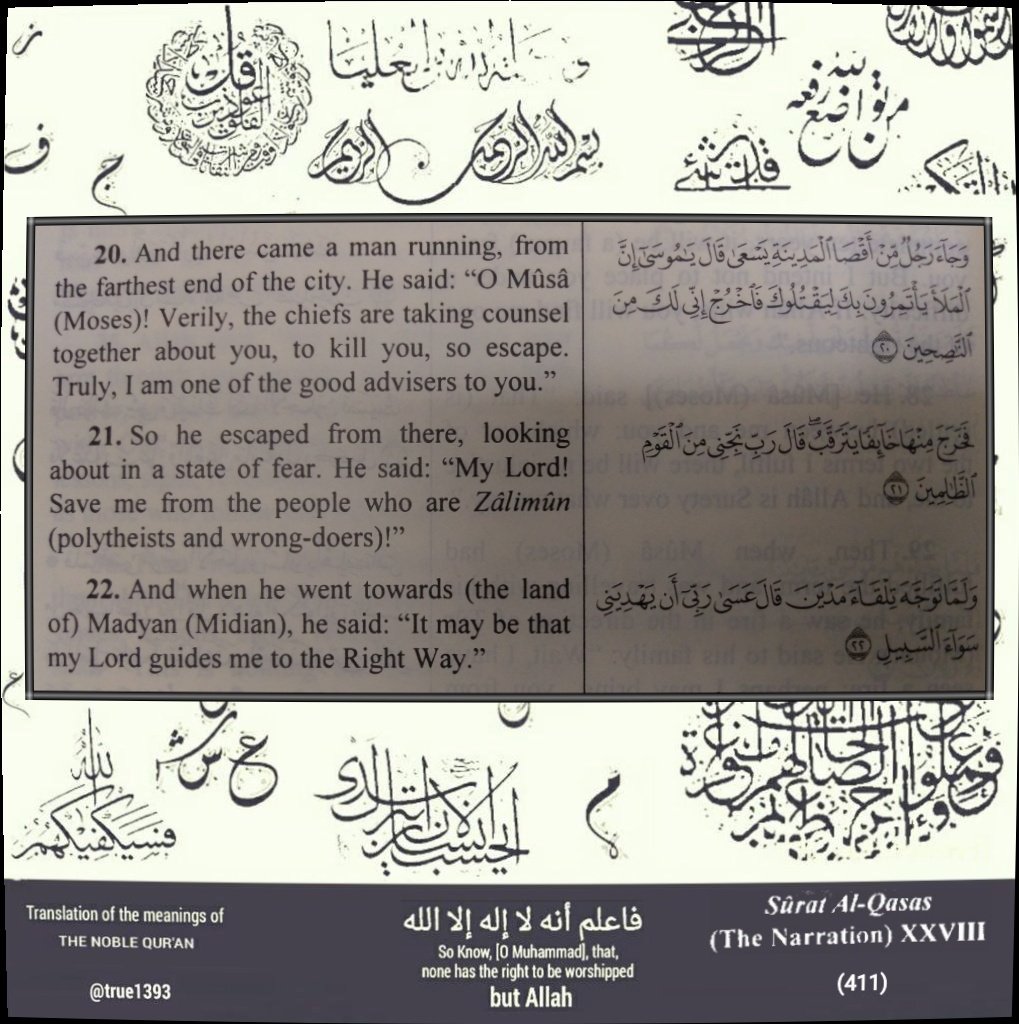 بسم الله الرحمن الرحيم
20. And there came a man running, from
the farthest end of the city. He said: “O Mûsâ
(Moses)! Verily, the chiefs are taking counsel
together about you, to kill you, so escape.
Truly, I am one of the good advisers to you.”
وَجَآءَ رَجُلٌ مِّنْ أَقْصَا ٱلْمَدِينَةِ يَسْعَىٰ قَالَ يَـٰمُوسَىٰٓ إِنَّ
ٱلْمَلَأَ يَأْتَمِرُونَ بِكَ لِيَقْتُلُوكَ فَٱخْرُجْ إِنِّى لَكَ مِنَ
ٱلنَّـٰصِحِينَ ٢٠
21. So he escaped from there, looking
about in a state of fear. He said: “My Lord!
Save me from the people who are Zâlimûn
(polytheists and wrong-doers)!”
فَخَرَجَ مِنْهَا خَآئِفًا يَتَرَقَّبُ ۖ قَالَ رَبِّ نَجِّنِى مِنَ ٱلْقَوْمِ
ٱلظَّـٰلِمِينَ ٢١
22. And when he went towards (the land
of) Madyan (Midian), he said: “It may be that
my Lord guides me to the Right Way.”
وَلَمَّا تَوَجَّهَ تِلْقَآءَ مَدْيَنَ قَالَ عَسَىٰ رَبِّىٓ أَن يَهْدِيَنِى
سَوَآءَ ٱلسَّبِيلِ ٢٢
فسيكفيكهم الله
Translation of the meanings of
THE NOBLE QUR'AN
@true1393
فاعلم أنه لا إله إلا الله
So Know, [O Muhammad], that,
none has the right to be worshipped
but Allah
Sûrat Al-Qasas
(The Narration) XXVIII
(411)